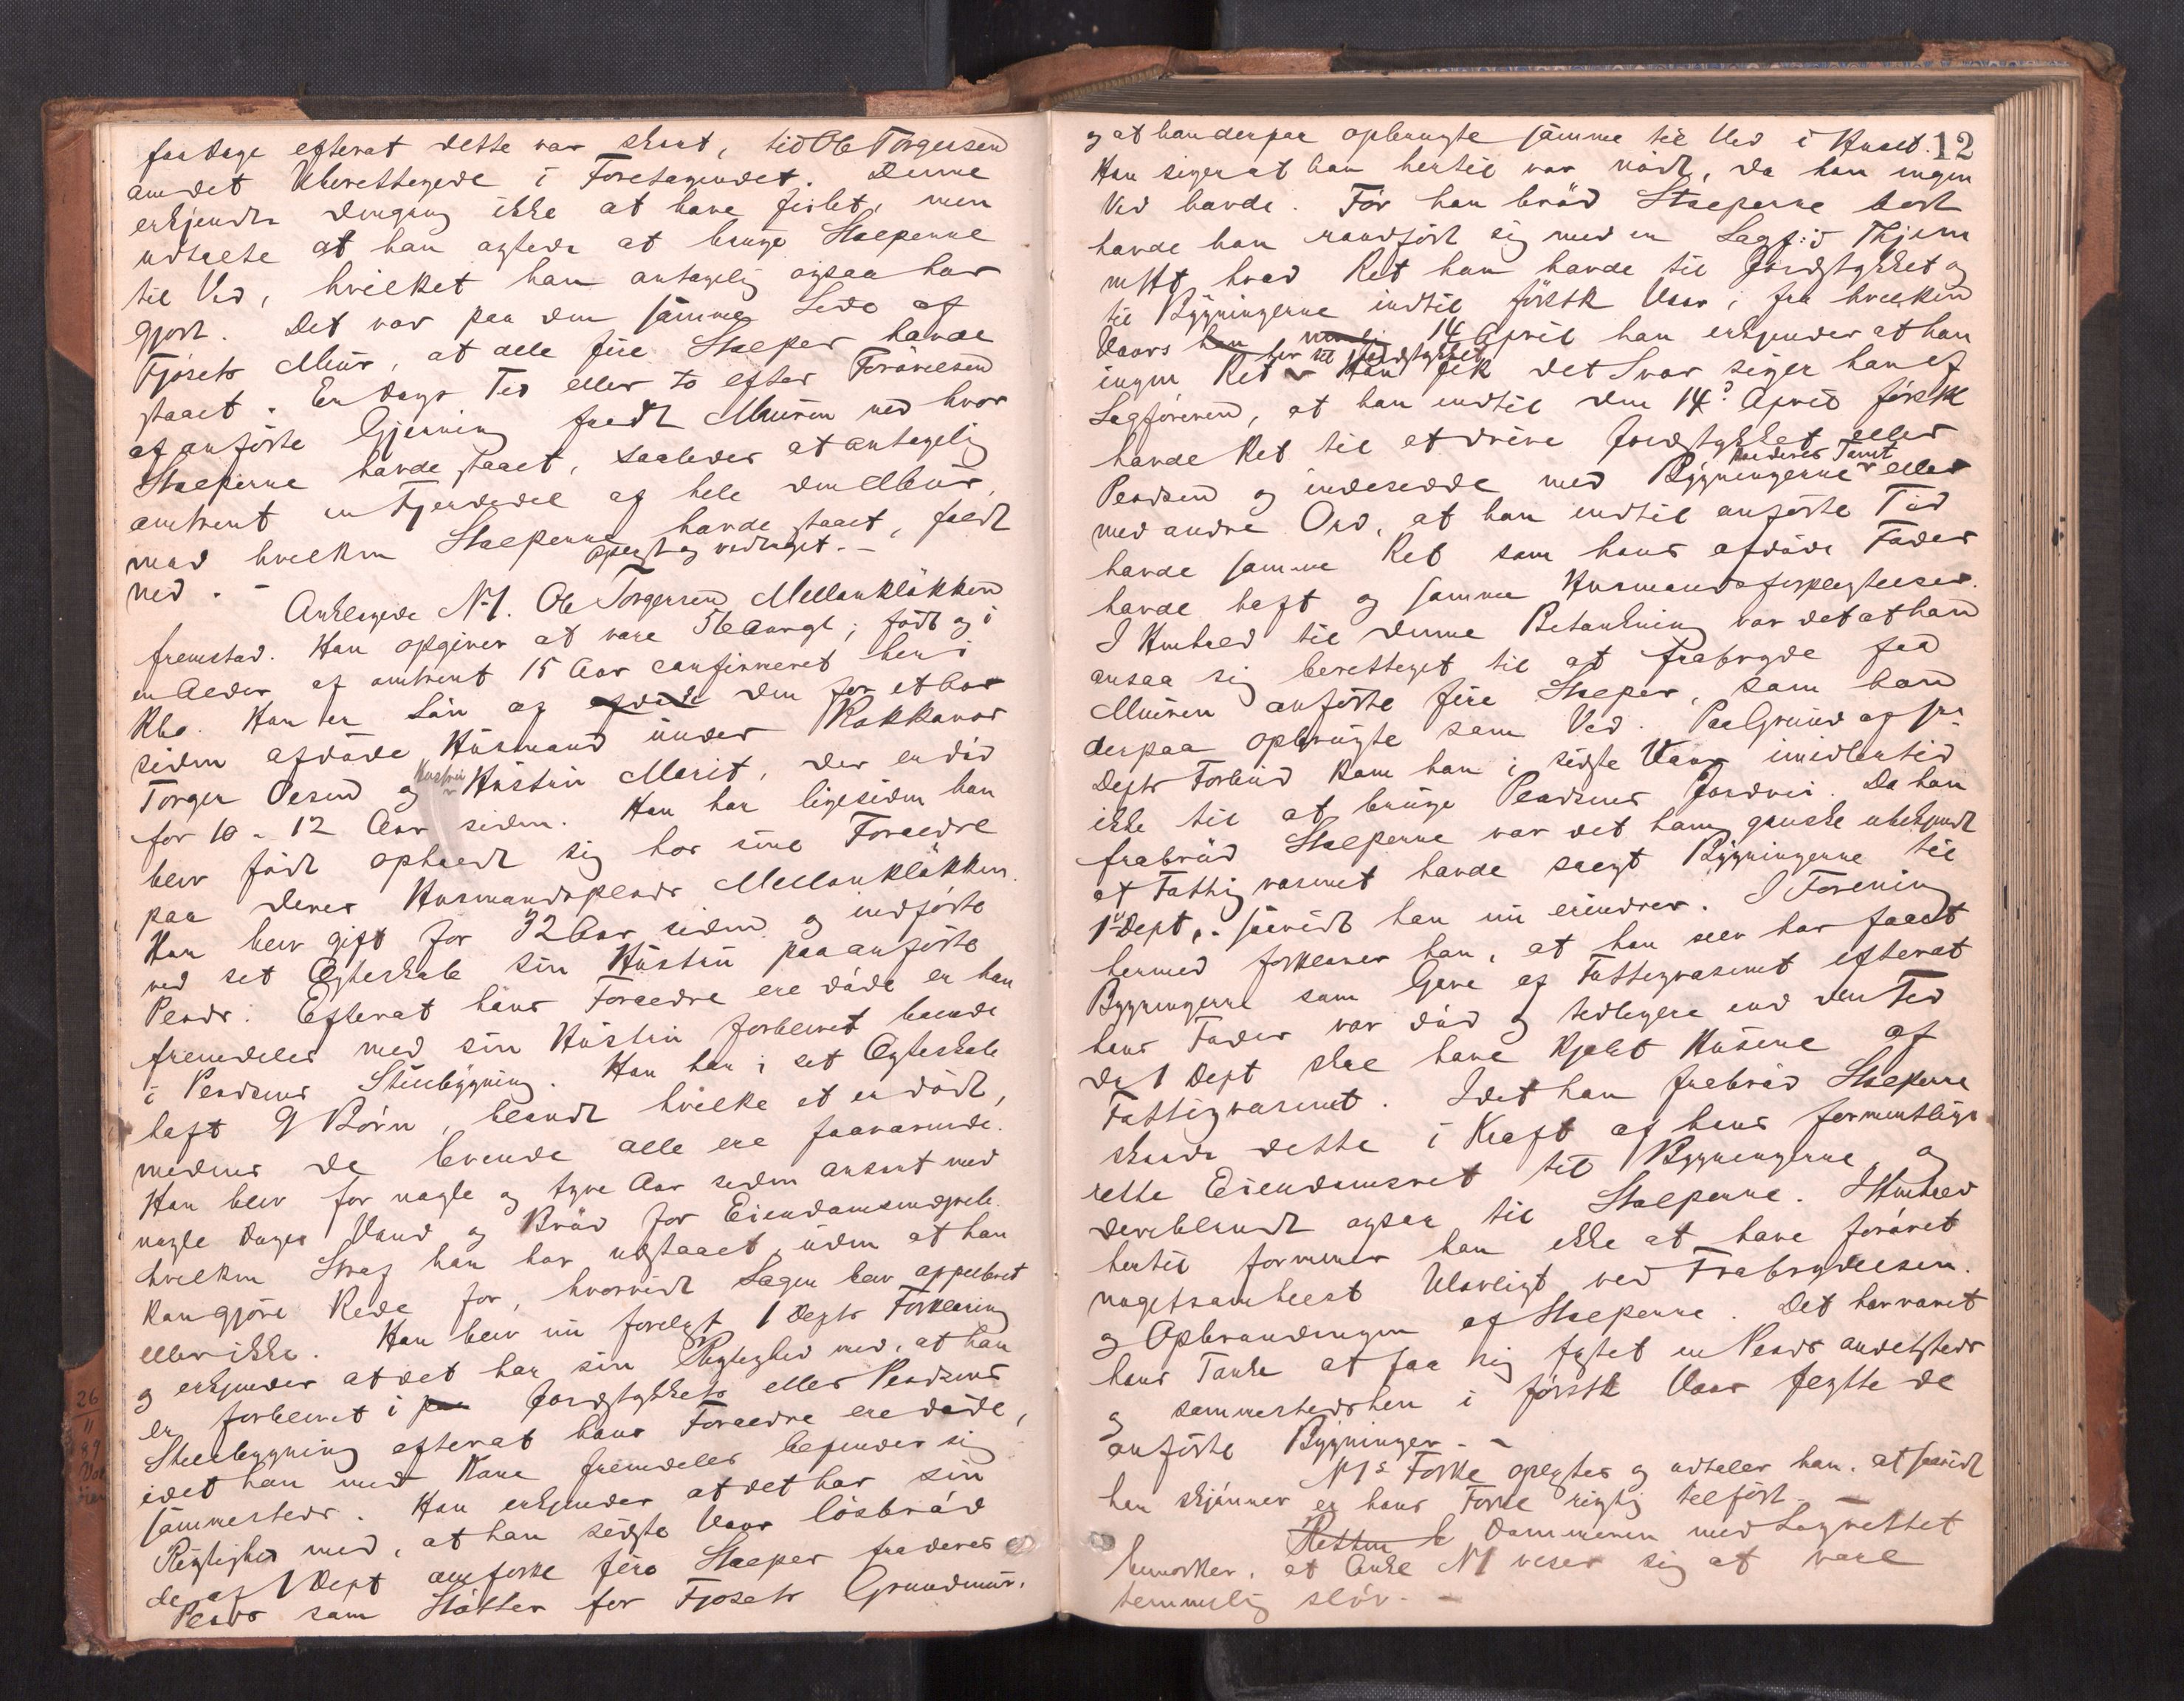 faa Dage efterat dette var skeet, tid Ole Torgersen
om det Uberettegede i Foretagendet. Denne
erkjendte dengang ikke at have feilet, men
udtalte at han agtede at bruge Stolperne
til Ved, hvilket han antagelig ogsaa har
gjort. Det var paa den samme Side af
Fjösets Muur, at alle fire Stolper havde
staaet. En Dags Tid eller to efter Forövelsen
af anförte Gjerning faldt Muren ned hvor
Stolperne havde staaet, saaledes at antagelig
omtrent en Fjerdedel af hele den Muur,
mod hvilken Stolperne havde staaet, faldt
ned. - Oplæst og vedtaget. -
Anklagede No 1. Ole Torgersen Mellanklökken
fremstod. Han opgiver at være 56 Aar gl; födt og i
en Alder af omtrent 15 Aar confirmeret her i
Han er Sön af den for et Aar
siden afdöde Husmand under
Torger Olsen og Hustru Marit, der er död
for 10 a 12 Aar siden. Han har ligesiden han
blev födt opholdt sig hos sine Forældre
paa deres Husmandsplads Mellanklökken.
Han blev gift for 32 Aar siden og indförte
ved sit Ægteskab sin Hustru paa anförte
Plads. Efterat hans Forældre ere döde er han
fremdeles med sin Hustru forblevet boende
i Pladsens Stuebygning. Han har i sit Ægteskab
haft 9 Börn, blandt hvilke et er dödt,
medens de levende alle ere fraværende.
Han blev for nogle og tyve Aar siden anseet med
nogle Dages Vand og Bröd for Eiendomsindgreb.
hvilken Straf han har udstaaet, uden at han
kan gjöre Rede for, hvorvidt Sagen blev appelleret
eller ikke. Han blev nu forelagt 1 Depts Forklaring
og erkjender at det har sin Rigtighed med, at han
er forblevet i Jordstykkets eller Pladsens
Stuebygning efterat hans Forældre ere döde,
idet han med Kone fremdeles befinder sig
sammesteds. Han erkjender at det har sin
Rigtighed med, at han sidste Vaar lösbröd
de af 1 Dept omforkl fire Stolper fra deres
Plads som Stötter for Fjösets Grundmur,
12
og at han derpaa opbrugte samme til Ved i Huset.
Han siger at han hertil var nödt, da han ingen
Ved havde. För han bröd Stolperne bort
havde han raadfört sig med en Sagf:
hvad Ret han havde til Jordstykket og
til Bygningerne indtil förstk Vaar, fra hvilken
Vaars 14 April han erkjender at han
ingen Ret har til Jordstykket. Han fik det Svar siger han af
Sagföreren, at han indtil den 14 April förstk
havde Ret til at drive Jordstykket eller
Pladsen og indesidde med Bygningerne eller
med andre Ord, at han indtil anförte Tid
havde samme Ret som hans afdöde Fader
havde haft og samme Husmandsforpligtelser.
I Henhold til denne Betænkning var det at han
ansaa sig berettiget til at frabryde fra
Muren anförte fire Stolper, som han
derpaa opbrugte som Ved. Paa Grund af
Depts Forbud kom han i sidste Vaar imidlertid
ikke til at bruge Pladsens Jordvei. Da han
frabröd Stolperne var det ham ganske ubekjendt
at Fattigvæsenet havde solgt Bygningerne til
1 Dept, saavidt han nu erindrer. I Forening
hermed forklarer han, at han selv har faaet
Bygningerne som Gave af Fattigvæsenet efterat
hans Fader var död og tidligere end den Tid
da 1 Dept skal have kjöbt Husene af
Fattigvæsenet. Idet han frabröd Stolperne
skede dette i Kraft af hans formentlige
rette Eiendomsret til Bygningerne og
deriblandt ogsaa til Stolperne. I Henhold
hertil formener han ikke at have forövet
nogetsomhelst Ulovligt ved Frabrydelsen
og Opbrændingen af Stolperne. Det har været
hans Tanke at faa sig fæstet en Plads andetsteds
og sammestedshen i förstk Vaar flytte de
anförte Bygninger. -
Forkl oplystes og udtaler han, at saavidt
han skjönner er hans Forkl rigtig tilfört. -
Dommeren med Lagrettet
bemærker, at Ankl No 1 viser sig at være
temmelig slöv. -
26
11
89